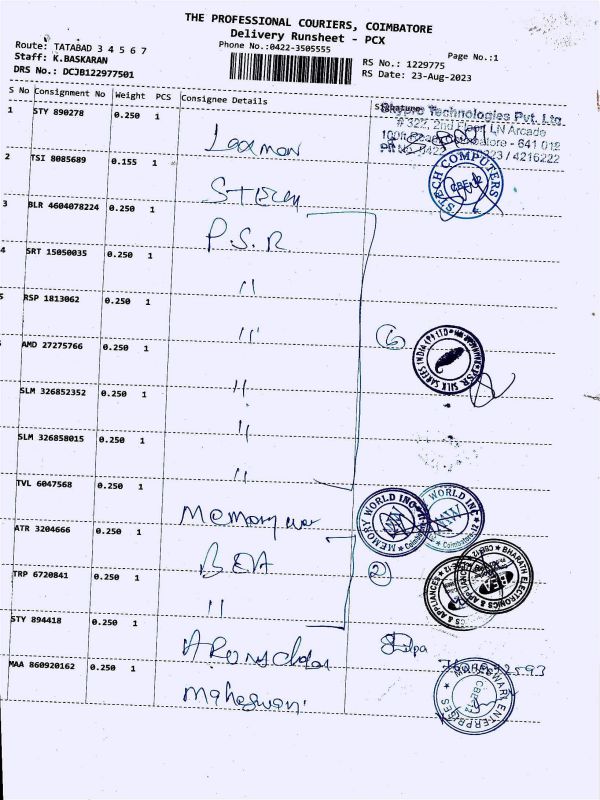 THE PROFESSIONAL COURIERS, COIMBATORE
Delivery Runsheet - PCX
Route: TATABAD 3 4 5 6 7
Phone No.:0422-3505555
Page No.:1
Staff: K.BASKARAN
RS No.: 1229775
DRS No.: DCJB122977501
RS Date: 23-Aug-2023
S No Consignment No Weight PCS Consignee Details
1 STY 890278 0.250 1 Laxman
Technologies Pvt. Ltd.
# 322, 2nd Floor, LN Arcade
641 012
/ 4216222
2 TSI 8085689 0.155 1
STECH COMPUTERS
CBE-12
3 BLR 4604078224 0.250 1 P.S.R
4 SRT 15050035 0.250 1 "
5 RSP 1813062 0.250 1 "
6
PSR SILK SAREES INDIA (P) LTD
AMD 27275766 0.250 1 "
SLM 326852352 0.250 1 "
SLM 326858015 0.250 1 "
TVL 6047568 0.250 1 Memory
MEMORY WORLD INC
WORLD INC
MW
ATR 3204666 0.250 1 BEA
2
BHARATH ELECTRONICS & APPLIANCES
BEA
TRP 6720841 0.250 1 "
STY 894418 0.250 1
MAA 860920162 0.250 1 Maheswari
MAHESWARI ENTERPRISES